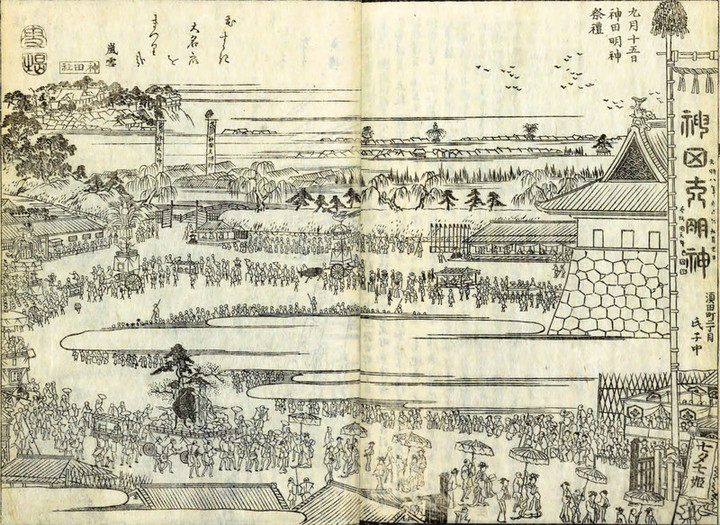 九月十五日
神田明神
祭禮
神田大明神
須田町二丁目
氏子中
花すゝき
大名衆を
まつりかな
嵐雪
神田社
雪堤